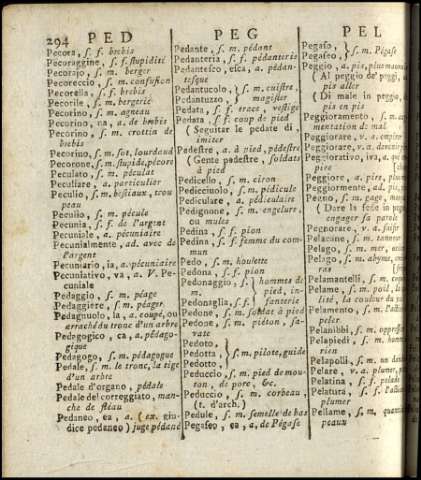 294 PED
Pecora, s. f. brebis
Pecoraggine, s. f. stupidité
Pecorajo, s. m. berger
Pecoreccio, s. m. confusion
Pecorella, s. f. brebis
Pecorile, s. m. bergerie
Pecorino, s. m. agneau
Pecorino, na, a. de brebis
Pecorino, s. m. crottin de
brebis
Pecorino, s. m. sot, lourdaud
Pecorone, s. m. stupide, pécore
Peculato, s. m. péculat
Peculiare, a. particulier
Peculio, s. m. bestiaux, trou
peau
Peculio, s. m. pécule
Pecunia, s. f. de l'argent
Pecuniale, a. pécuniaire
Pecunialmente, ad. avec de
l'argent
Pecuniario, ia, a. pécuniaire
Pecuniativo, va, a. V. Pe-
cuniale
Pedaggio, s. m. péage
Pedaggiere, s. m. péager
Pedagnuolo, la, a. coupé, ou
arraché du tronc d'un arbre
Pedagogico, ca, a. pédago-
gique
Pedagogo, s. m. pédagogue
Pedale, s. m. le tronc, la tige
d'un arbre
Pedale d'organo, pédale
Pedale del correggiato, man-
che de fléau
Pedaneo, ea, a. (ex. giu-
dice pedaneo) juge pédané
PEG
Pedante, s. m. pédant
Pedanteria, s. f. pédanterie
Pedantesco, esca, a. pédan-
tesque
Pedantucolo, } s. m. cuistre,
Pedantuzzo, } magister
Pedata, s. f. trace, vestige
Pedata, s. f. coup de pied
(Seguitar le pedate di
imiter
Padestre, a. à pied, pédestre
(Gente padestre, soldats
à pied
Pedicello, s. m. ciron
Pedicciuolo, s. m. pédicule
Pediculare, a. pédiculaire
Pedignone, s. m. engelure
ou mules
Pedina, s. f. pion
Pedina, s. f. femme du com-
mun
Pedo, s. m. houlette
Pedona, s. f. pion
Pedonaggio, s. } hommes de
m. } pied, in-
Pedonaglia, s. f. } fanterie
Pedone, s. m. soldat à pied
Pedone, s. m. piéton, sa-
vate
Pedoto, }
Pedotta, } s. m. pilote, guide
Pedotto, }
Peduccio, s. m. pied de mou-
ton, de porc, &c.
Peduccio, s. m. corbeau,
(t. d'arch.)
Pedule, s. m. semelle de bas
Pegaseo, ea, a. de Pégase
PEL
Pegaseo, } s. m. Pégase
Pegaso, }
Peggio, a. pis, plus mauvais
(Al peggio de' peggi,
pis aller
(Di male in peggio,
pis en pis
Peggioramento, s. m.
mentation de mal
Peggiorare, v. a. empirer
Peggiorare, v. n.
Peggiorativo, iva, a.
pire
Peggiore, a. pire,
Peggiormente, ad. pis,
Pegno, s. m. gage,
(Dare la fede in
engager sa parole
Pegnorare, v. a. saisir
Pelacine, s. m.
Pelago, s. m. mer,
Pelago, s. m. abyme,
ras
Pelamantelli, s. m.
Pelame, s. m. poil, la
lité, la couleur du
Pelamento, s. m. l'action
peler
Pelanibbi, s. m.
Pelapiedi, s. m. homme
rien
Pelapolli, s. m. un
Pelare, v. a. plumer,
Pelatina, s. f. pelade
Pelatura, s. f. l'action
plumer
Pellame, s. m.
peaux